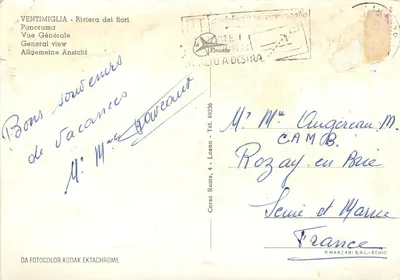 VENTIMIGLIA - Riviera dei fiori
Panorama
Vue Générale
General view
Allgemeine Ansicht
Bons souvenirs
de vacances
Mr Mme
DA FOTOCOLOR KODAK EKTACHROME
Corso Roma, 4 - Loano - Tel. 69236
A DESTRA
Mr Mme
Rozay en Brie
Seine et Marne
France